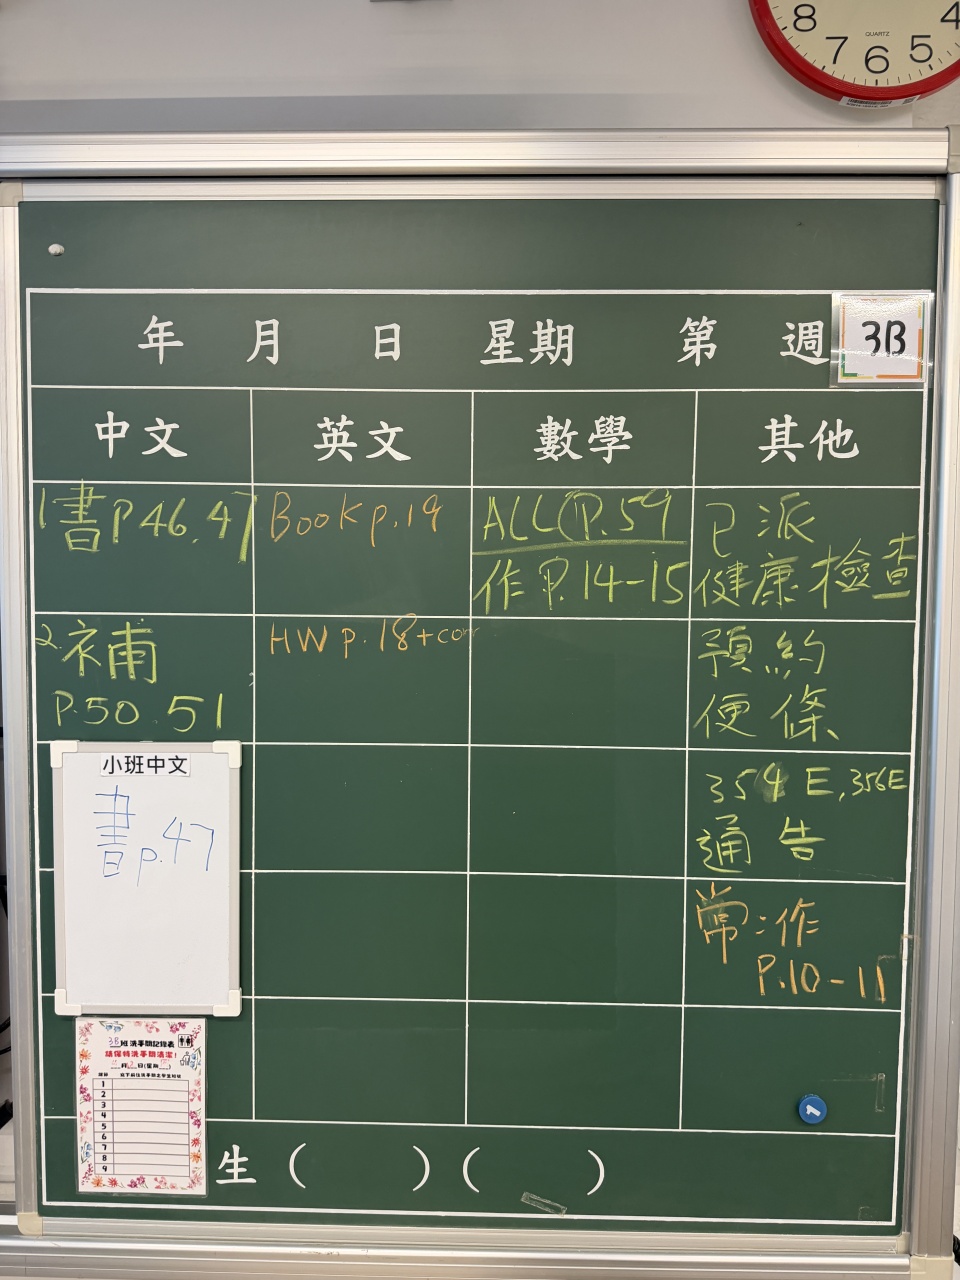 8 7 6 5 4
QUARTZ
年 月 日 星期 第 週
3B
中文 英文 數學 其他
1 書 P 46.47
2. 補
P.50.51
Book p.19
HW p.18+corr
ALL P.59
作 P.14-15
已派
健康檢查
預約
便條
354 E, 356E
通告
常:作
P.10-11
小班中文
書 p.47
3B 班洗手間記錄表
請保持洗手間清潔!
1
2
3
4
5
6
7
8
9
生 ( ) ( )
1